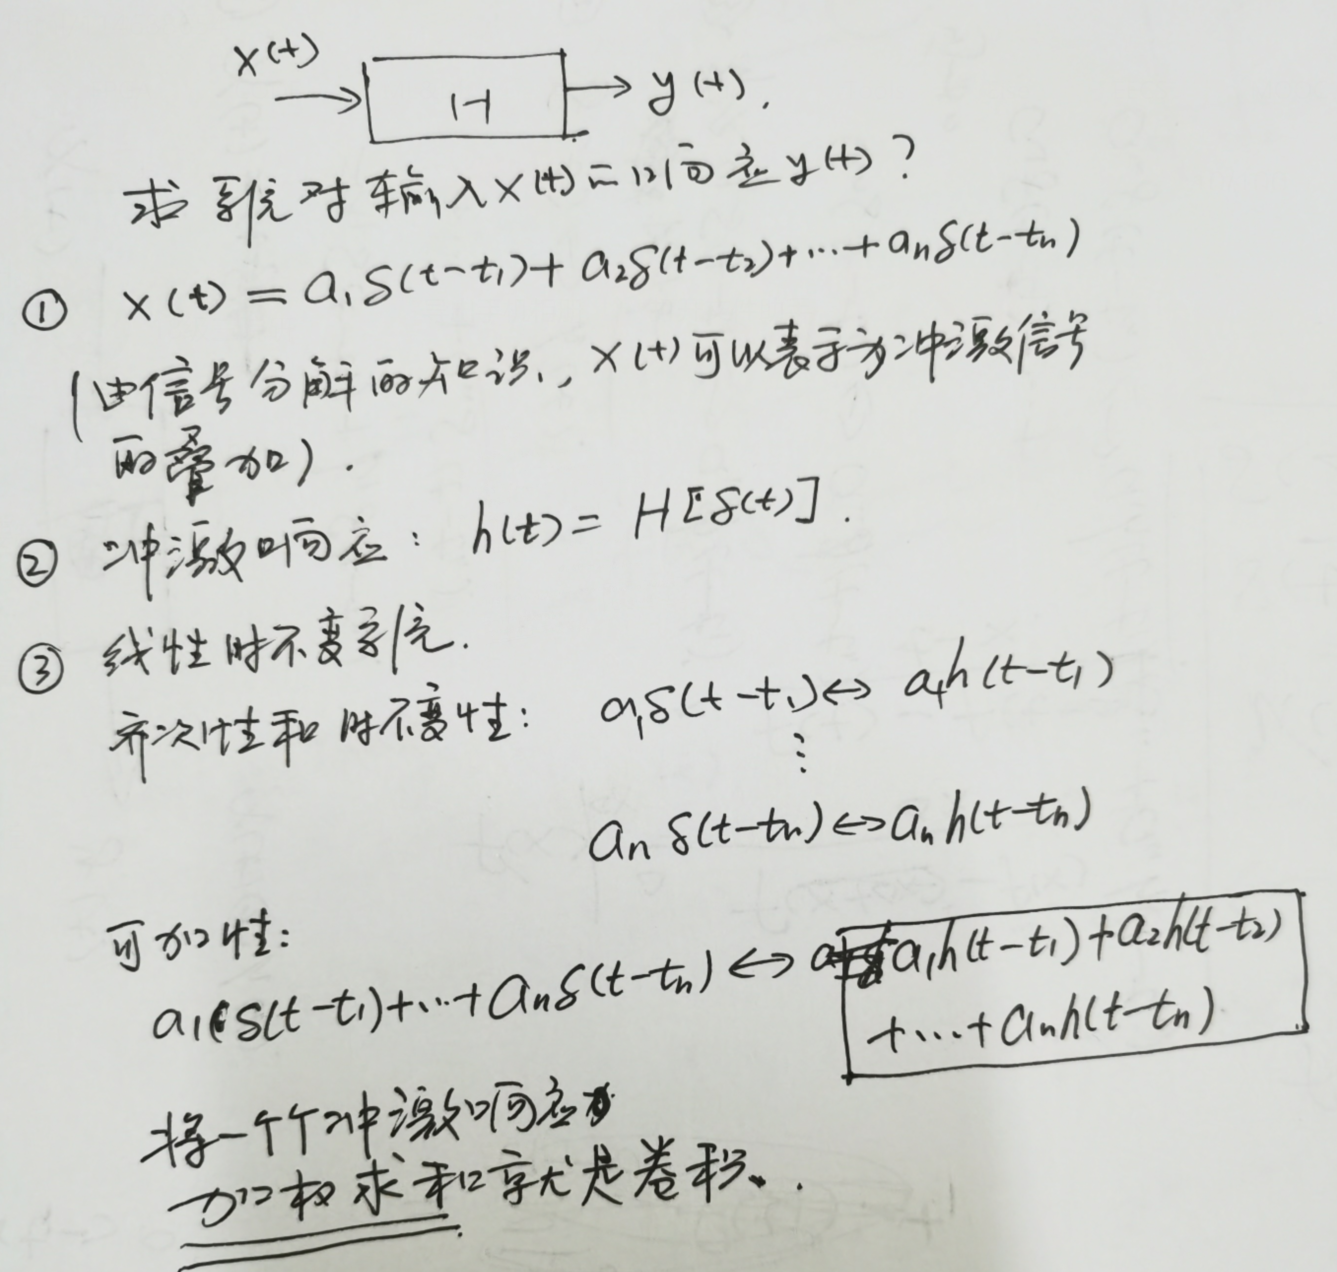 x(t)
H
y(t).
求系统对输入x(t)的响应y(t)?
① x(t) = a₁δ(t-t₁)+ a₂δ(t-t₂)+…+anδ(t-tn)
(由信号分解的知识,x(t)可以表示为冲激信号
的叠加).
② 冲激响应: h(t)= H[δ(t)].
③ 线性时不变系统.
齐次性和时不变性: a₁δ(t-t₁)↔ a₁h(t-t₁)
⋮
an δ(t-tn)↔an h(t-tn)
可加性:
a₁δ(t-t₁)+…+anδ(t-tn)↔ a₁h(t-t₁)+a₂h(t-t₂)
+…+anh(t-tn)
将一个个冲激响应
加权求和就是卷积.